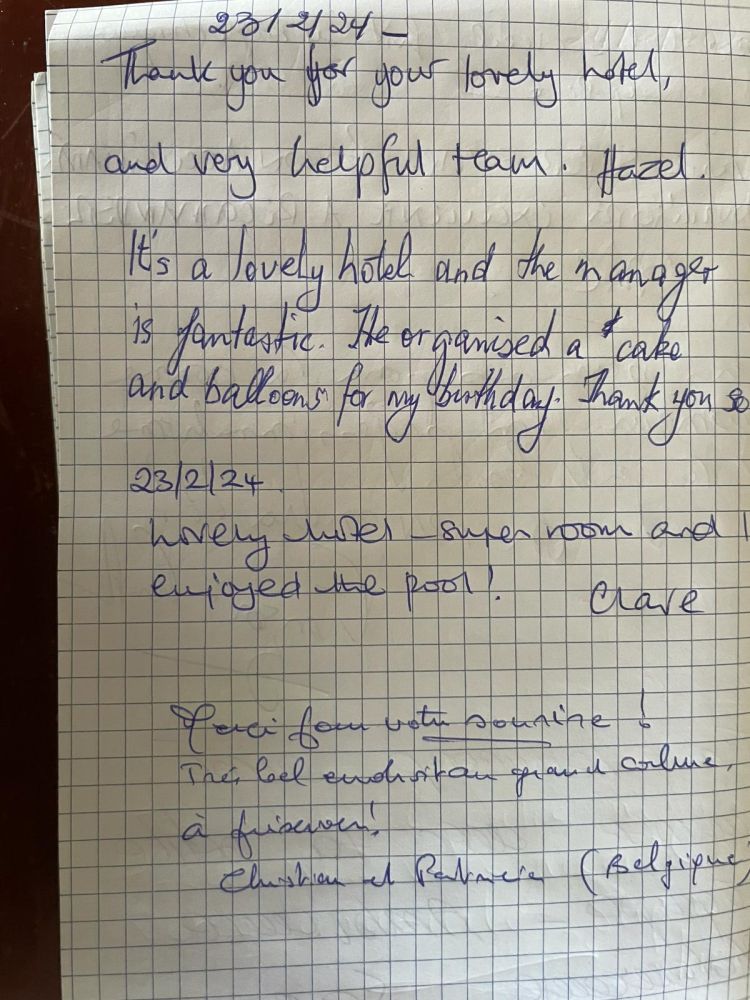 23/2/24 -
Thank you for your lovely hotel,
and very helpful team. Hazel.
It's a lovely hotel and the manager
is fantastic. He organised a cake
and balloons for my birthday. Thank you so
23/2/24
Lovely hotel - super room and I
enjoyed the pool! Clare
Merci pour votre sourire !
Très bel endroit au grand calme,
à préserver!
Christian et Patricia (Belgique)